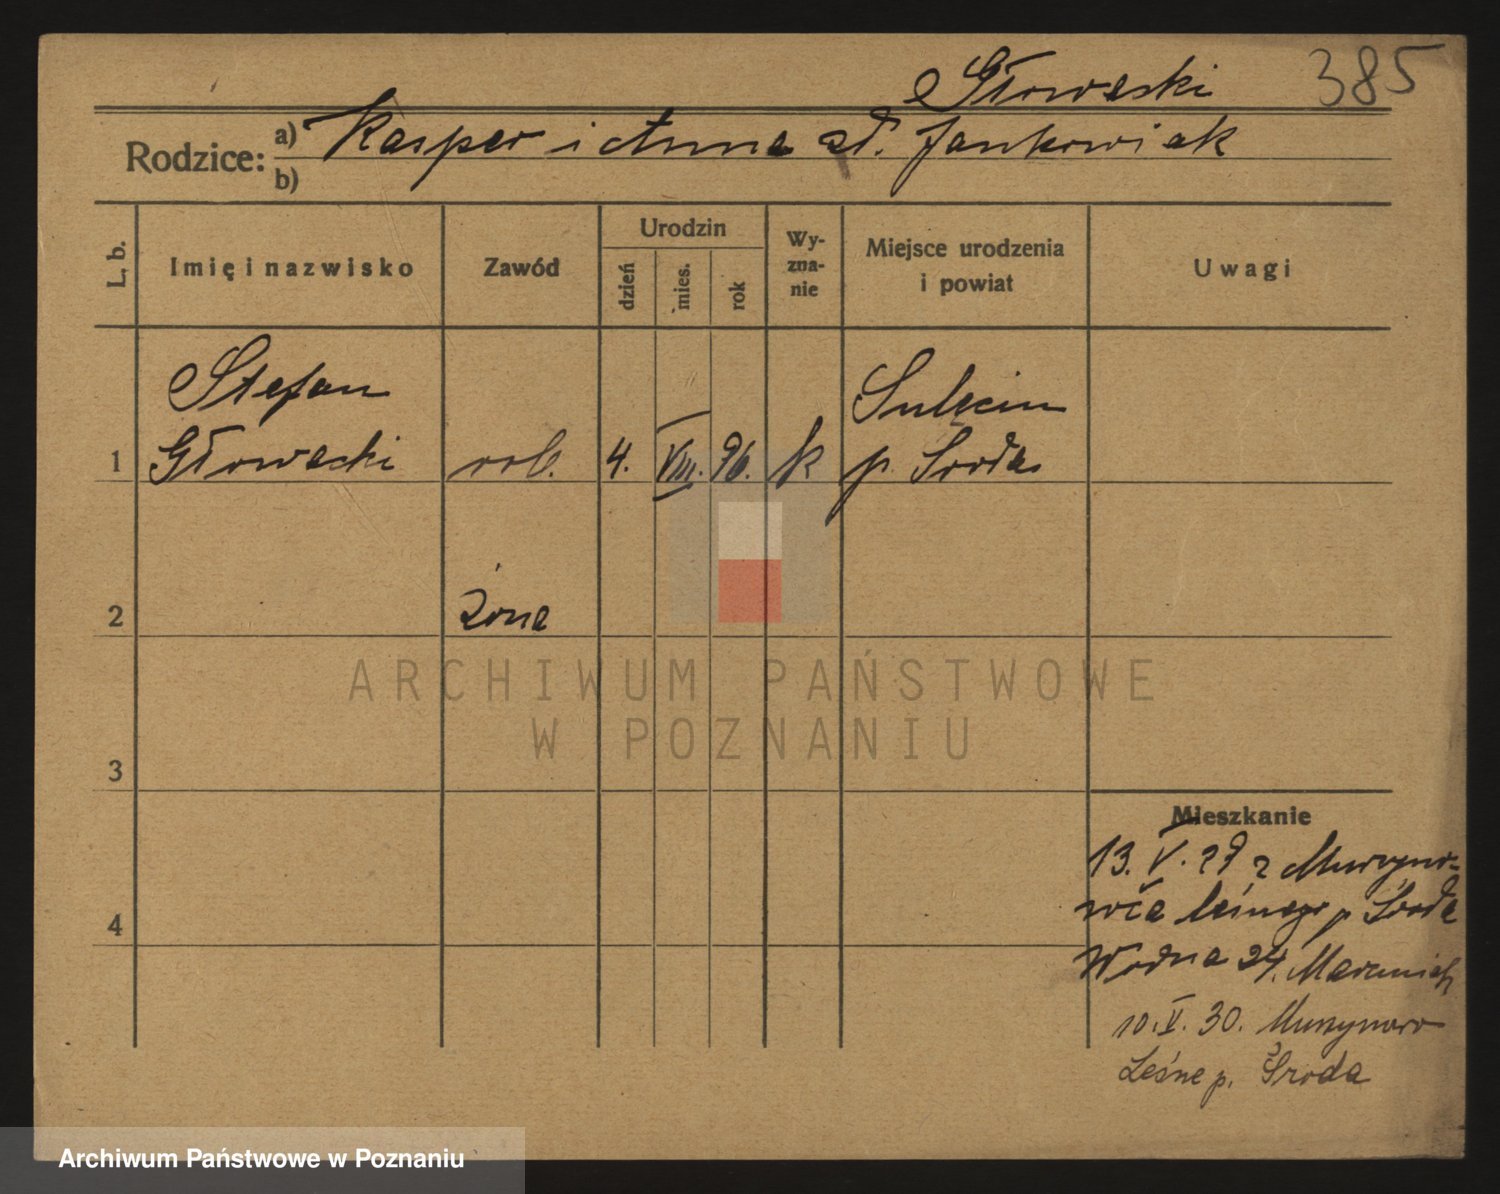 385
Głowacki
Rodzice: a) Kasper i Anna zd. Jankowiak
b)
L. b.
Imię i nazwisko
Zawód
Urodzin
dzień
mies.
rok
Wy-
zna-
nie
Miejsce urodzenia
i powiat
Uwagi
Stefan
Sulęcin
1 Głowacki rob. 4. VIII. 96. k p. Środa
2 żona
ARCHIWUM PAŃSTWOWE
W POZNANIU
3
Mieszkanie
13. V. 29 z Murzyno-
wca leśnego p Środa
4
Wodna 24.
10. V. 30. Murzynowo
Leśne p. Środa
Archiwum Państwowe w Poznaniu